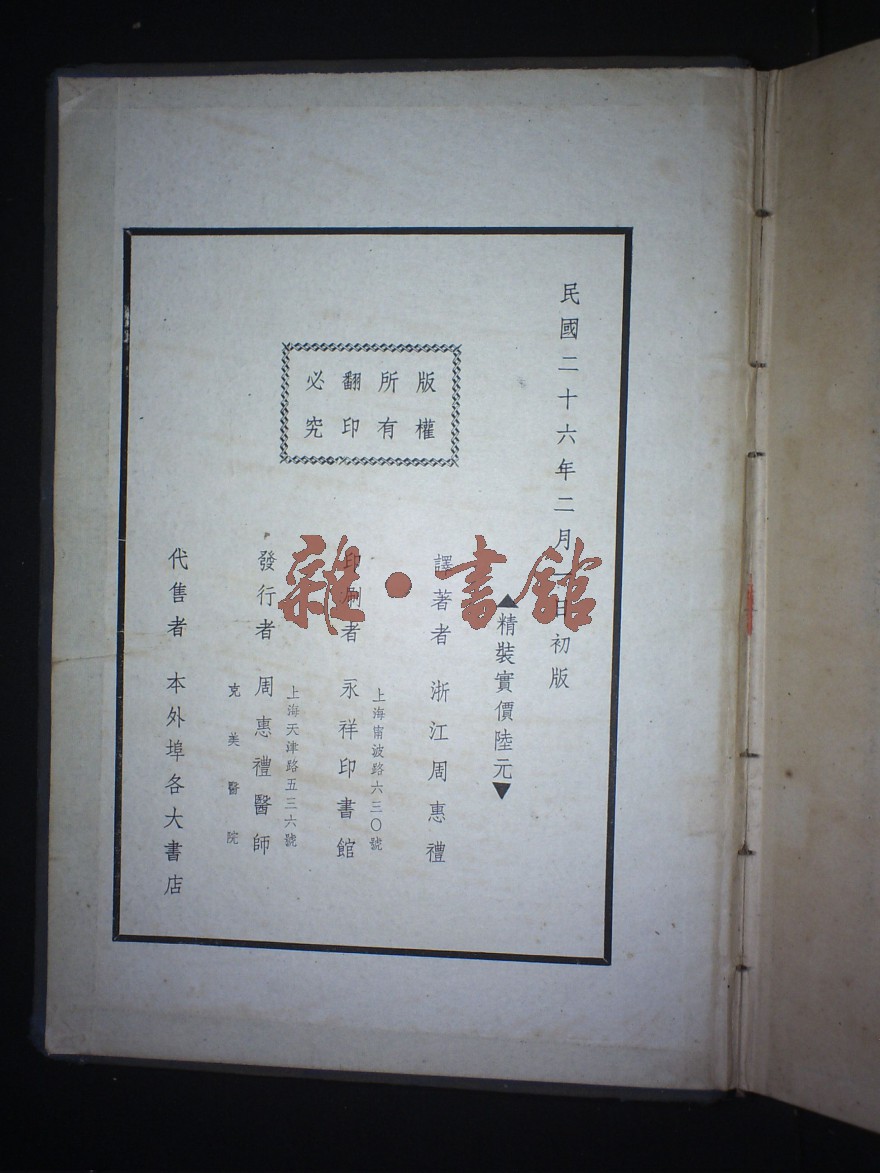 民國二十六年二月一日初版
▲精裝實價陸元▼
版權
所有
翻印
必究
譯著者 浙江周惠禮
上海甯波路六三〇號
印刷者 永祥印書館
上海天津路五三六號
發行者 周惠禮醫師
克美醫院
代售者 本外埠各大書店
雜·書館